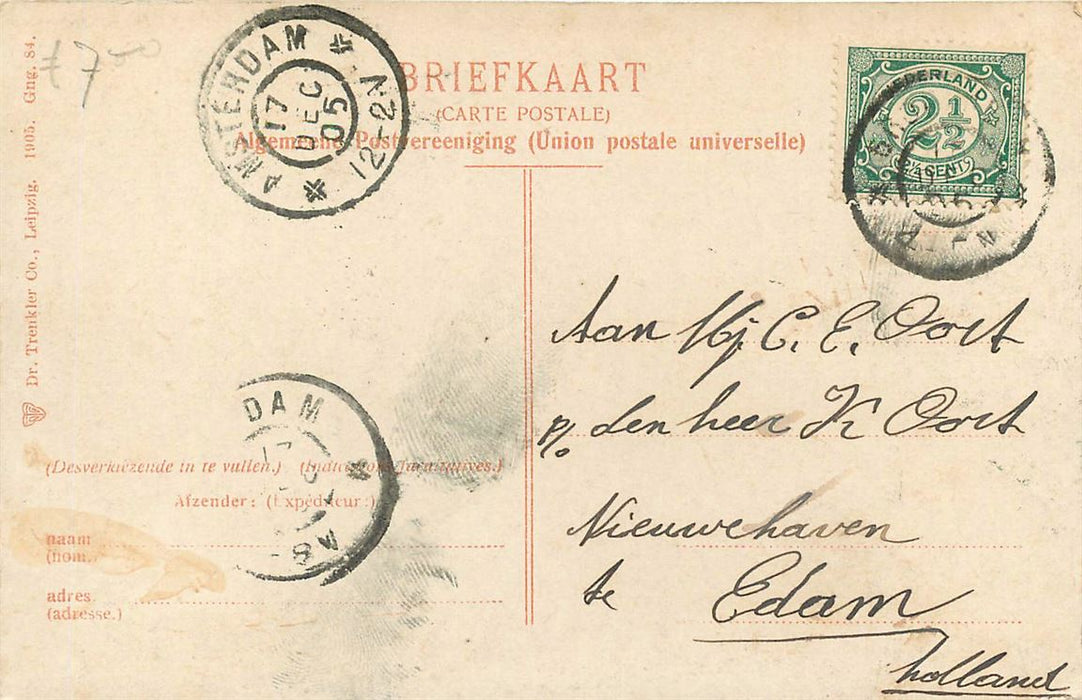 Dr. Trenkler Co., Leipzig. 1905. Gng. 84.
7
AMSTERDAM
17
DEC
05
12-2N
BRIEFKAART
(CARTE POSTALE)
Algemeene Postvereeniging (Union postale universelle)
NEDERLAND
2½
CENT
Aan Mj C. E. Oort
p/o den heer K Oort
Nieuwehaven
te Edam
holland
DAM
(Desverkiezende in te vullen.) (Indications facultatives.)
Afzender: (Expéditeur:)
naam
(nom.
adres.
(adresse.)